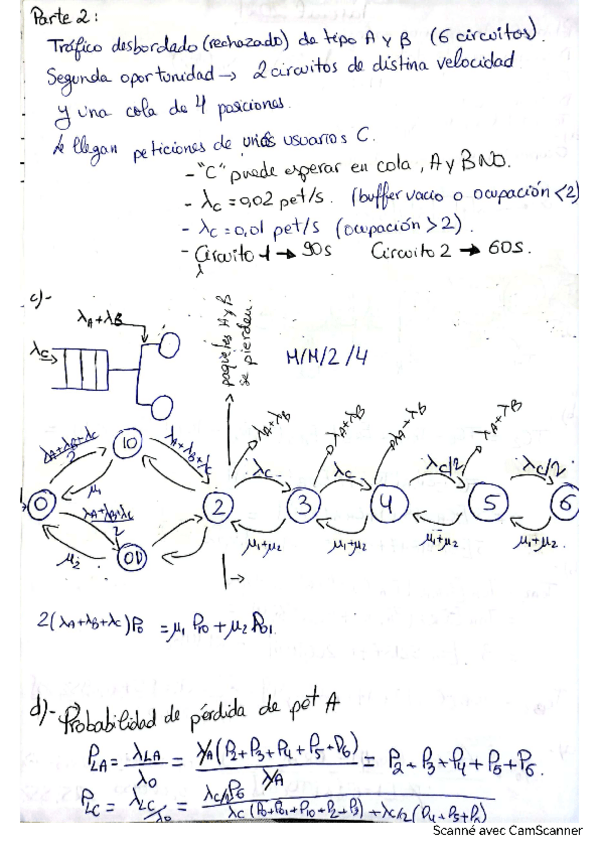 Parte 2:
Tráfico desbordado (rechazado) de tipo A y B (6 circuitos).
Segunda oportunidad → 2 circuitos de distina velocidad
y una cola de 4 posiciones.
llegan peticiones de unos usuarios C.
- "C" puede esperar en cola, A y B NO.
- λc = 0,02 pet/s. (buffer vacio o ocupación < 2)
- λc = 0,01 pet/s (ocupación > 2).
- Circuito 1 → 90s Circuito 2 → 60s.
λ
c)-
λA+λB
λc
paquetes A y B
se pierden.
M/M/2/4
λA+λB+λc
2
10
λA+λB+λc
λA+λB
λA+λB
λA+λB
λA+λB
λc
λc
λc/2
λc/2
μ1
0
λA+λB+λc
2
2
3
4
5
6
μ2
01
μ1+μ2
μ1+μ2
μ1+μ2
μ1+μ2.
2(λA+λB+λc)P0 = μ1 P10 + μ2 P01
d)- Probabilidad de pérdida de pet A
PLA = λLA/λ0 = λA(P2+P3+P4+P5+P6)/λA = P2+P3+P4+P5+P6.
PLC = λLC/λ0 = λc/2 P6 / λc(P0+P01+P10+P2+P3)+λc/2(P4+P5+P6)
Scanné avec CamScanner